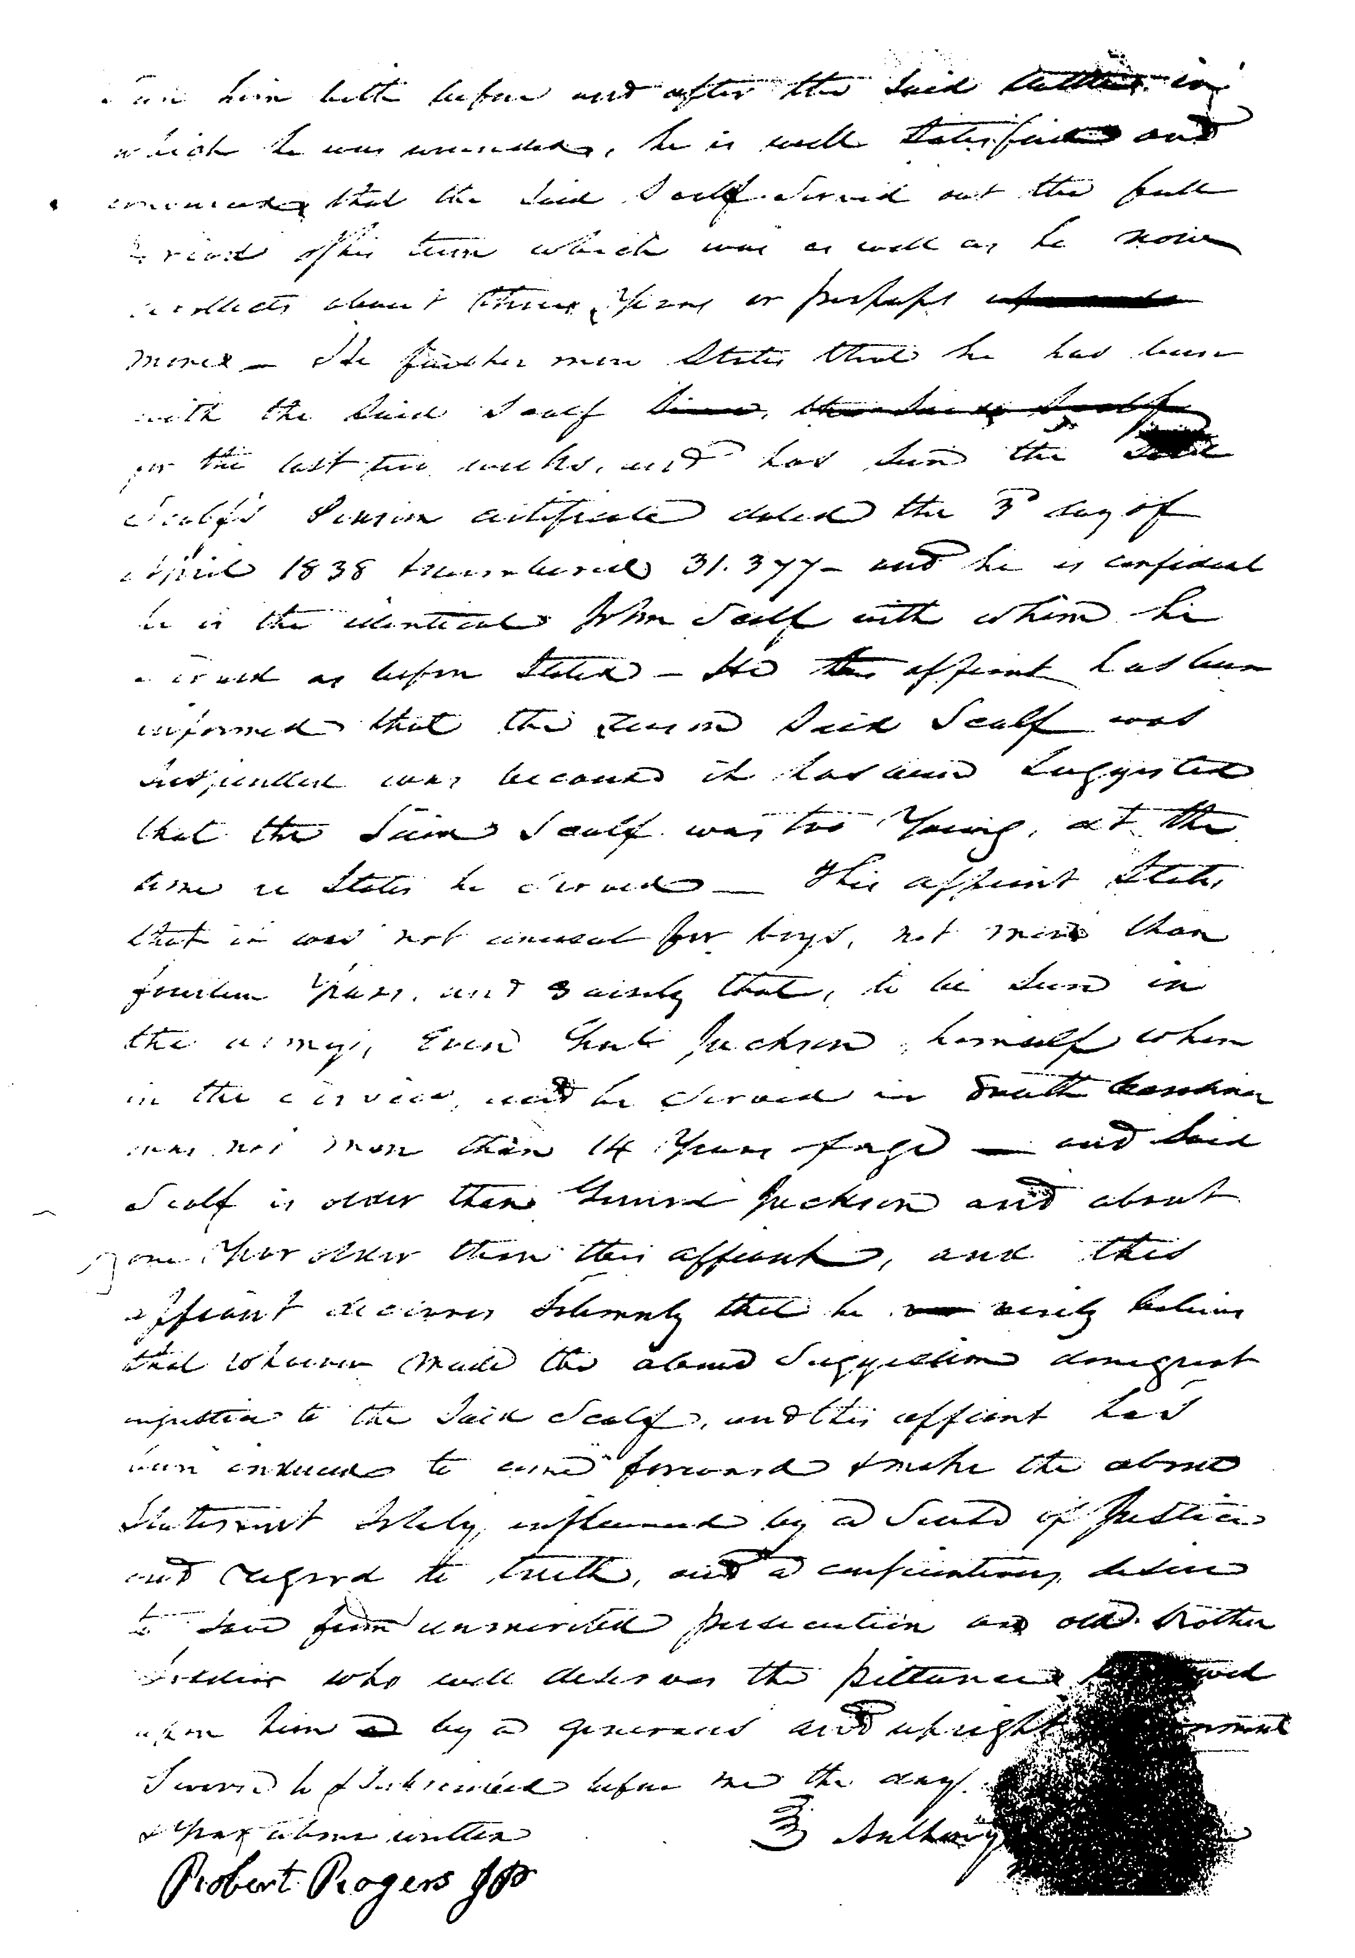 him both before and after the said battle in
which he was wounded, he is well satisfied and
convinced that the said Scalf served out the full
period of his term which was as well as he now
recollects about three years or perhaps
more - He further more states that he has been
with the said Scalf
for the last two weeks, and has seen the said
Scalf's Pension certificate dated the 3d day of
April 1838 & numbered 31.377 - and he is confident
he is the identical John Scalf with whom he
served as before stated - He the affiant has been
informed that the reason said Scalf was
suspended was because it has been suggested
that the said Scalf was too Young, at the
time he states he served - This affiant states
that it was not unusual for boys, not more than
fourteen Years, and scarcely that, to be seen in
the army, Even Genl Jackson himself when
in the service, and he served in South Carolina
was not more than 14 Years of age - and said
Scalf is older than General Jackson and about
one Year older than this affiant, and this
affiant declares solemnly that he verily believes
that whoever made the above suggestion done great
injustice to the said Scalf, and this affiant has
been induced to come forward & make the above
statement solely influenced by a sense of Justice
and regard to truth, and a conscientious desire
to save from unmerited persecution an old brother
soldier who well deserves the pittance bestowed
upon him by a generous and upright
Sworn to & subscribed before me the day
& Year above written Anthony
Robert Rogers JP